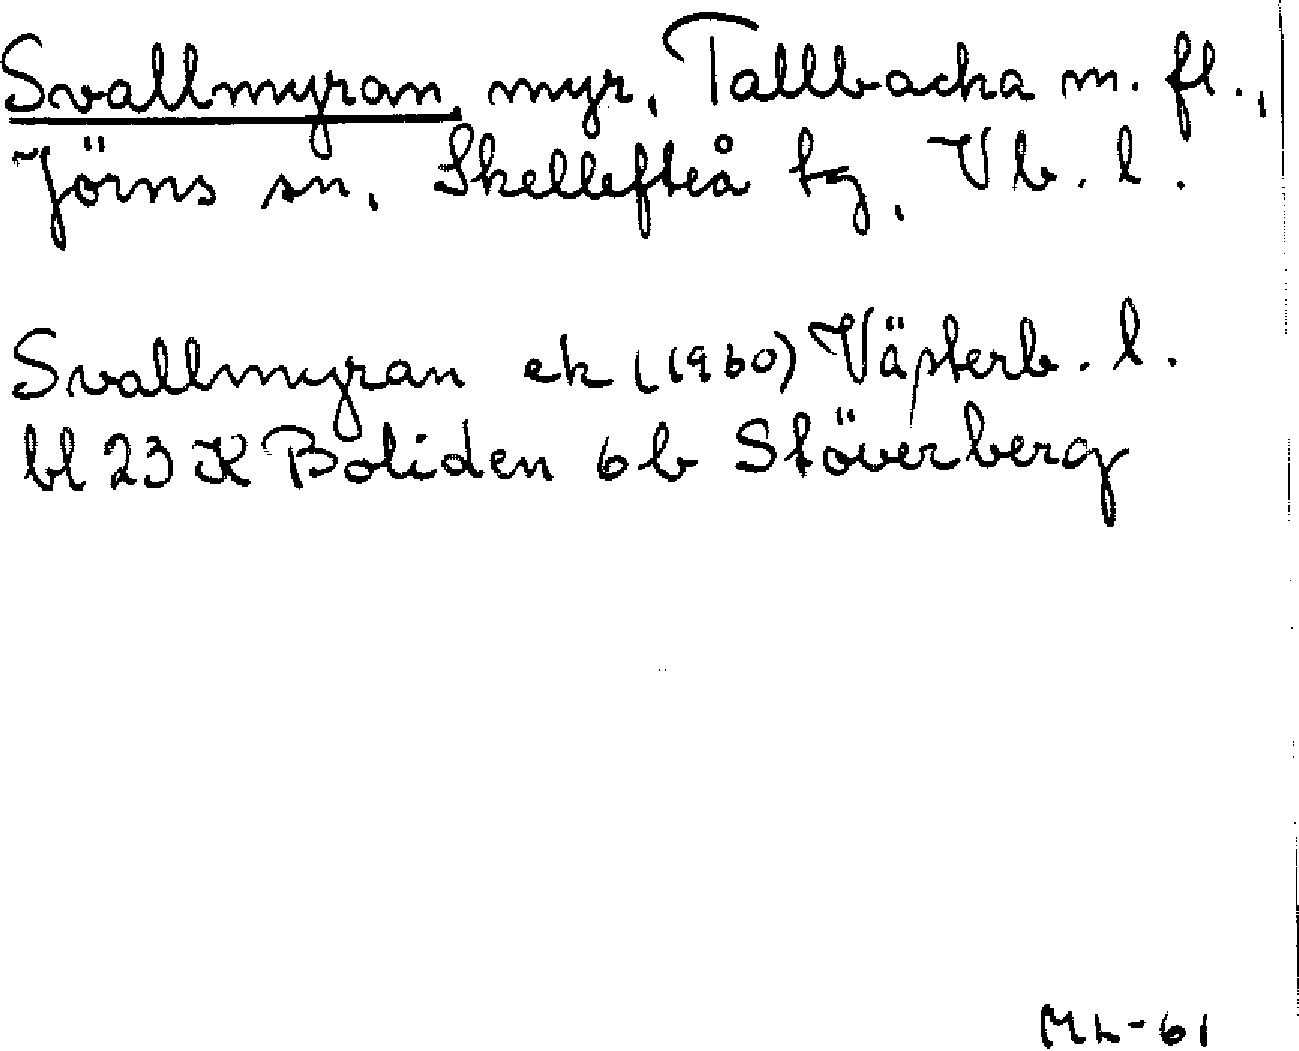 Svallmyran, myr, Tallbacka m. fl.,
Jörns sn, Skellefteå tg, Vb. l.
Svallmyran ek (1960) Västerb. l.
bl 23 K Boliden 6 b Stöverberg
ML-61